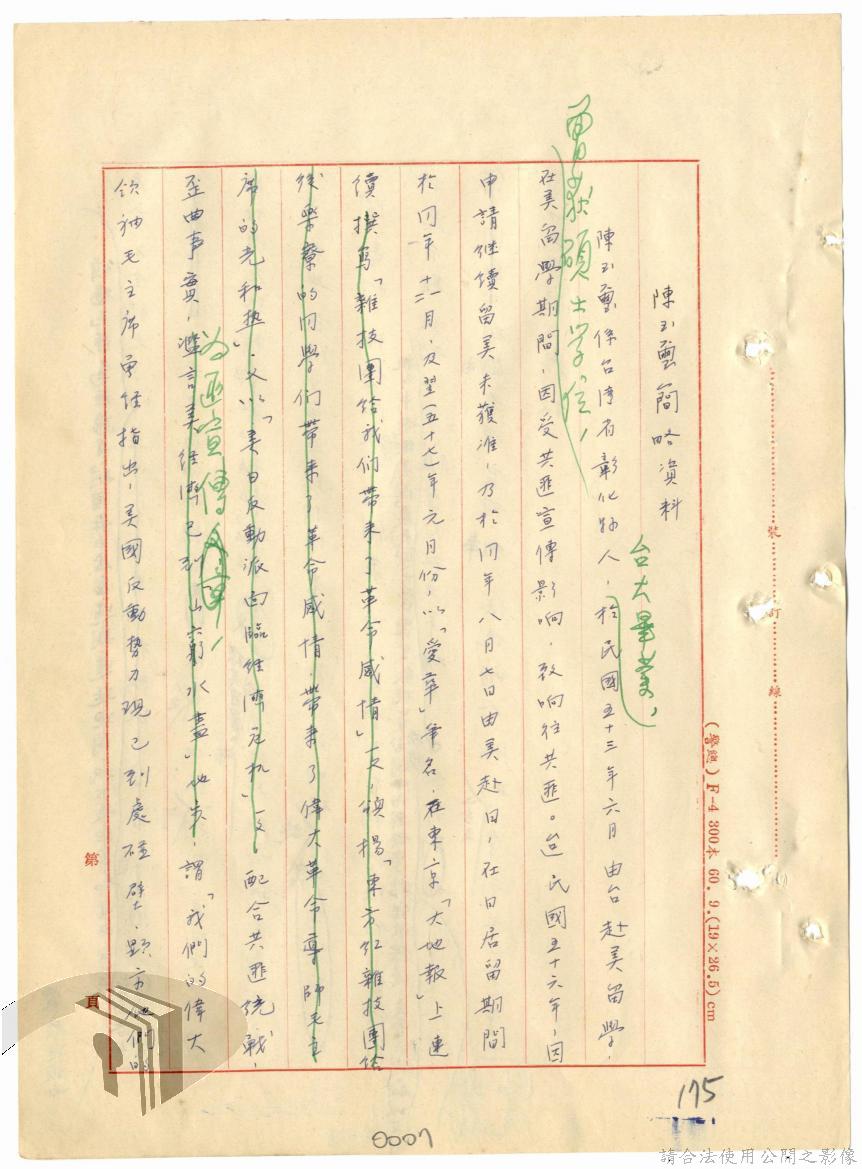 陳玉璽簡略資料
陳玉璽係台湾省彰化縣人，於民國五十三年六月由台赴美留學，
台大畢業，
在美留學期間，因受共匪宣傳影响，致响往共匪。迨民國五十六年，因
曾获碩士学位，
申請继續留美未獲准，乃於同年八月七日由美赴日，在日居留期間
於同年十二月，及翌(五十七)年元月份，以「愛華」筆名，在東京「大地報」上連
續撰写「雜技團给我们带来了革命感情」一文，頌揚「東方红雜技團给
後樂寮的同學们带来了革命感情，带来了偉大革命導師毛主
席的光和热」，又以「美日反動派面臨经濟危机」一文。配合共匪统戰，
為匪宣傳
歪曲事實，濫言美经濟已到「山窮水盡」地步，謂「我們的偉大
领袖毛主席曾经指出，美國反動勢力現已到處碰壁，顯示他們的
裝訂線
(警總) F-4 300本 60. 9. (19×26.5) cm
第
頁
175
0007
請合法使用公開之影像